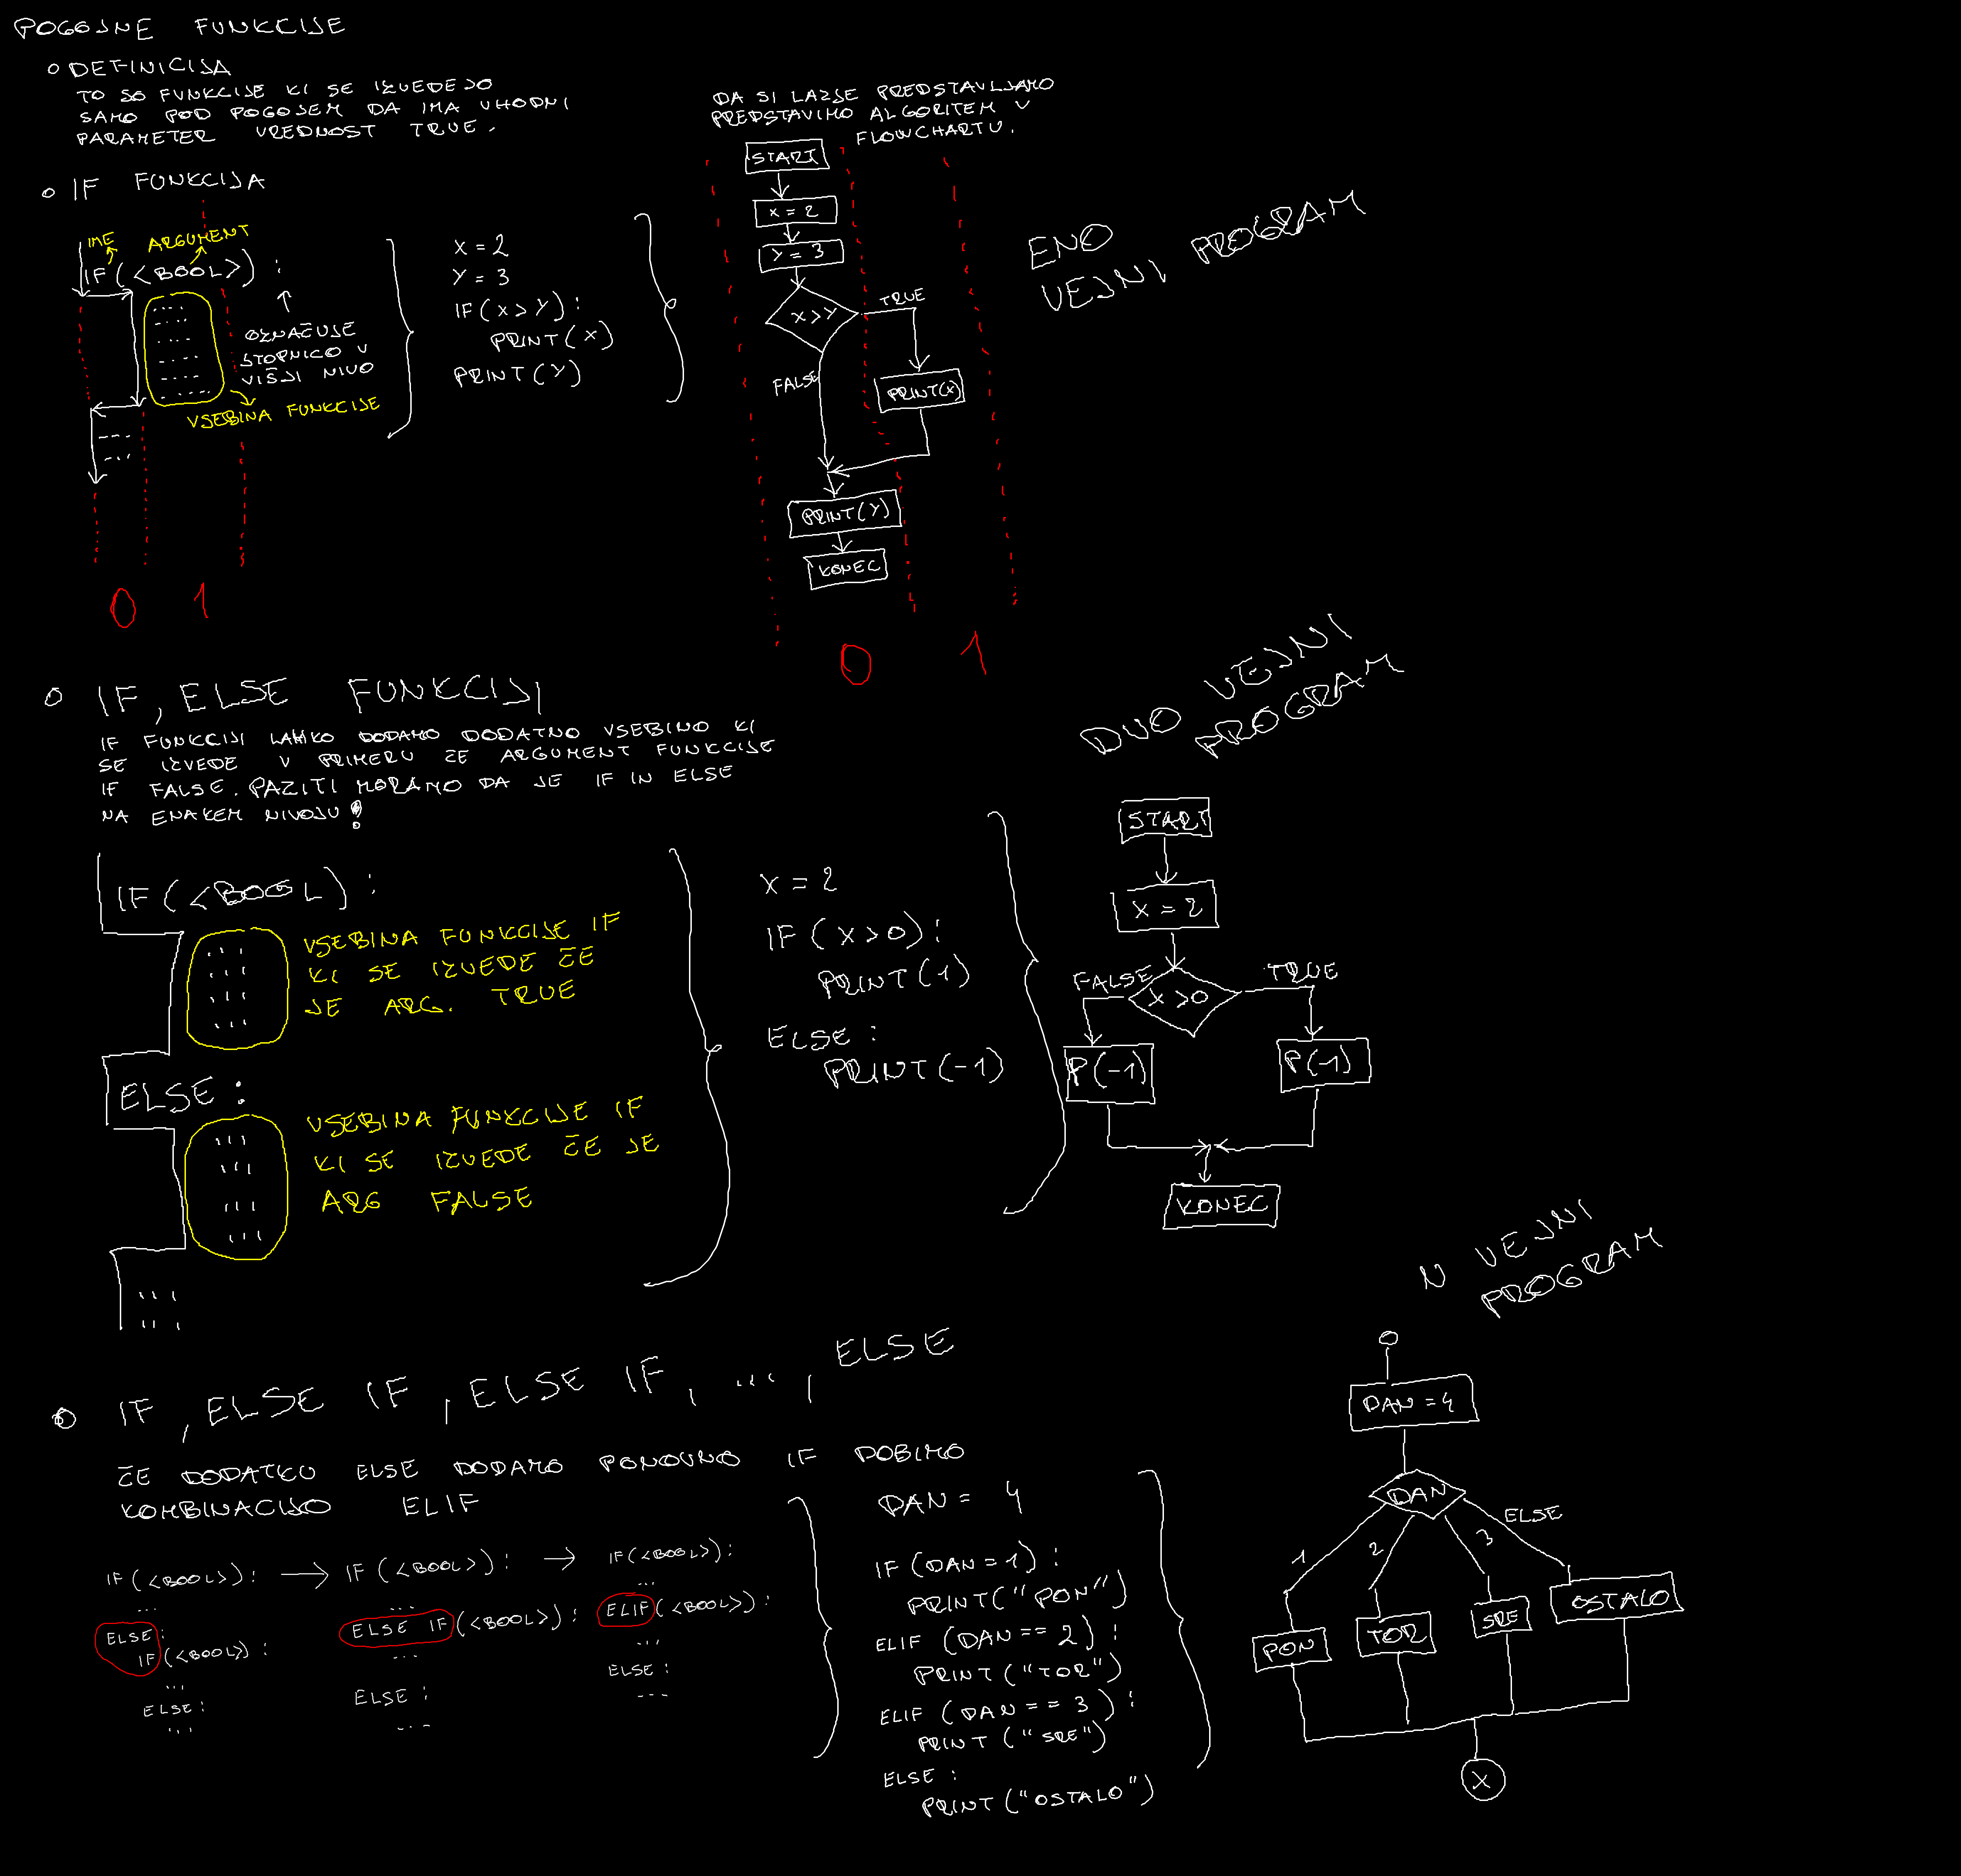 POGOJNE FUNKCIJE
DEFINICIJA
TO SO FUNKCIJE KI SE IZVEDEJO
SAMO POD POGOJEM DA IMA VHODNI
PARAMETER VREDNOST TRUE.
DA SI LAZJE PREDSTAVLJAMO
PREDSTAVIMO ALGORITEM V
FLOWCHARTU.
IF FUNKCIJA
IME ARGUMENT
IF (<BOOL>) :
OZNAČUJE
STOPNICO V
VIŠJI NIVO
VSEBINA FUNKCIJE
0 1
X = 2
Y = 3
IF (X > Y) :
PRINT (X)
PRINT (Y)
START
X = 2
Y = 3
X > Y
TRUE
FALSE
PRINT(X)
PRINT (Y)
KONEC
0 1
ENO
VEJNI PROGRAM
IF, ELSE FUNKCIJI
IF FUNKCIJI LAHKO DODAMO DODATNO VSEBINO KI
SE IZVEDE V PRIMERU ČE ARGUMENT FUNKCIJE
IF FALSE. PAZITI MORAMO DA JE IF IN ELSE
NA ENAKEM NIVOJU!
IF (<BOOL) :
...
...
...
...
VSEBINA FUNKCIJE IF
KI SE IZVEDE ČE
JE ARG. TRUE
ELSE :
...
...
...
...
VSEBINA FUNKCIJE IF
KI SE IZVEDE ČE JE
ARG FALSE
...
...
X = 2
IF (X > 0) :
PRINT (1)
ELSE :
PRINT (-1)
DVO VEJNI
PROGRAM
START
X = 2
FALSE
TRUE
X > 0
P(-1)
P(-1)
KONEC
IF, ELSE IF, ELSE IF, ..., ELSE
ČE DODATKU ELSE DODAMO PONOVNO IF DOBIMO
KOMBINACIJO ELIF
IF (<BOOL>) :
...
ELSE :
IF (<BOOL>) :
...
ELSE :
...
IF (<BOOL>) :
...
ELSE IF (<BOOL>) :
...
ELSE :
...
IF (<BOOL>) :
...
ELIF (<BOOL>) :
...
ELSE :
...
DAN = 4
IF (DAN = 1) :
PRINT("PON")
ELIF (DAN == 2) :
PRINT ("TOR")
ELIF (DAN == 3) :
PRINT ("SRE")
ELSE :
PRINT ("OSTALO")
N VEJNI
PROGRAM
DAN = 4
DAN
1
2
3
ELSE
PON
TOR
SRE
OSTALO
X